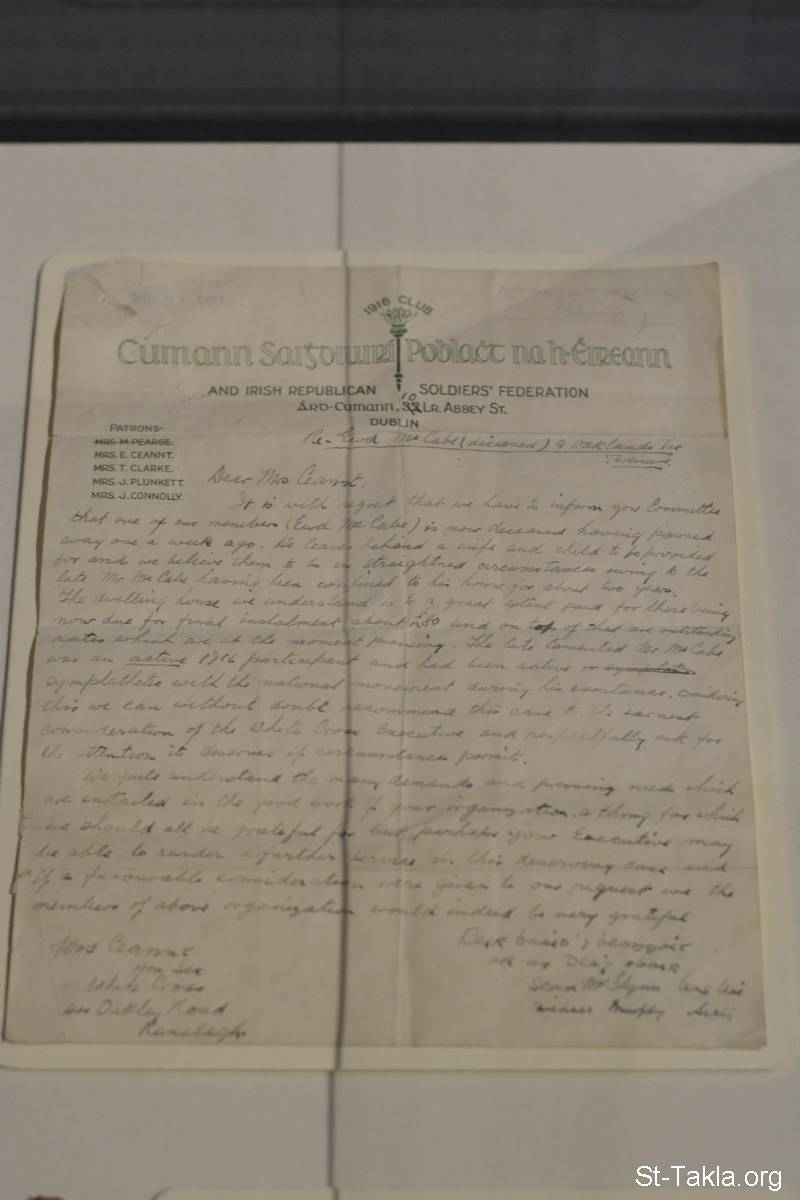 1916 CLUB
Cumann Saiġdiuirí Poblaċt na h-Éireann
AND IRISH REPUBLICAN SOLDIERS' FEDERATION
Árd-Cumann, 33 10 Lr. Abbey St.
DUBLIN
Re- Ewd McCabe (deceased) 9 Oaklands Ter
Terenure.
PATRONS-
MRS M. PEARSE.
MRS. E. CEANNT.
MRS. T. CLARKE.
MRS. J. PLUNKETT.
MRS. J. CONNOLLY.
Dear Mrs Ceannt.
It is with regret that we have to inform your Committee
that one of our members (Ewd McCabe) is now deceased having passed
away one a week ago. He leaves behind a wife and child to be provided
for and we believe them to be in straightned circumstances owing to the
late Mr McCabe having been confined to his home for about two years.
The dwelling house we understand is to a great extent paid for there being
now due for final instalment about £80 and on top of that are outstanding
rates which are at the moment pressing. The late lamented Mr McCabe
was an active 1916 participant and had been active or
symplathetic with the national movement during his existance. Considering
this we can without doubt recommend this case to the earnest
consideration of the White Cross Executive and respectfully ask for
the attention it deserves if circumstances permit.
We quite understand the many demands and pressing needs which
are entailed in the good work of your organization, a thing for which
we should all be grateful for but perhaps your Executive may
be able to render a further service in this deserving case and
if a favourable consideration were given to our request we the
members of above organization would indeed be very grateful
Mrs Ceannt
Hon Sec
White Cross
Oakley Road
Ranelagh
Sean McGlynn
Murphy
St-Takla.org